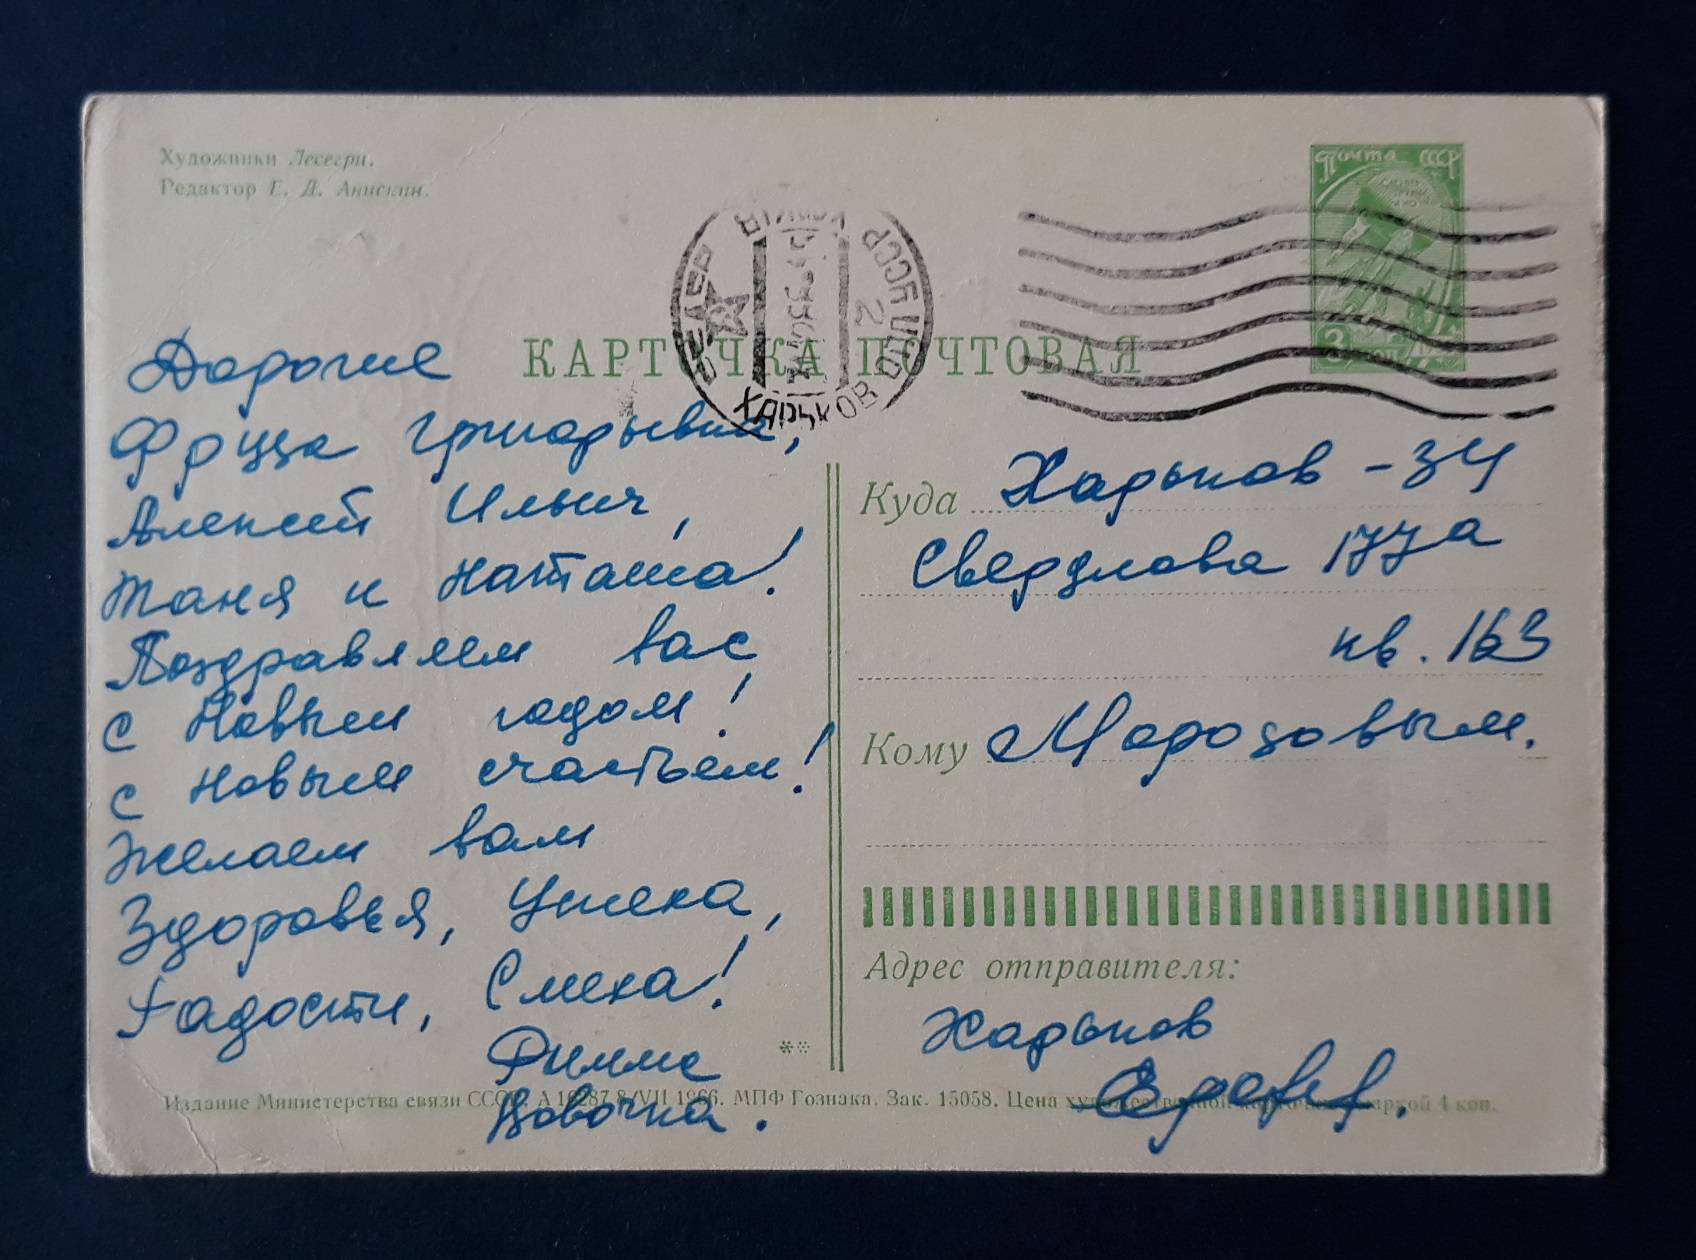 Художники Лесегри.
Редактор Г. Д. Анискин.
Почта СССР
3
КАРТОЧКА ПОЧТОВАЯ
ХАРЬКОВ
УССР
2
Дорогие
Фруза Григорьевна,
Алексей Ильич,
Таня и Наташа!
Поздравляем вас
с Новым годом!
с новым счастьем!
Желаем вам
Здоровья, Успеха,
Радости, Смеха!
Римма
Вовочка.
Куда Харьков - 34
Свердлова 177а
кв. 163
Кому Морозовым.
Адрес отправителя:
Харьков
Издание Министерства связи СССР. А 10287 8/VII 1966. МПФ Гознака. Зак. 15058. Цена художественной карточки с маркой 4 коп.